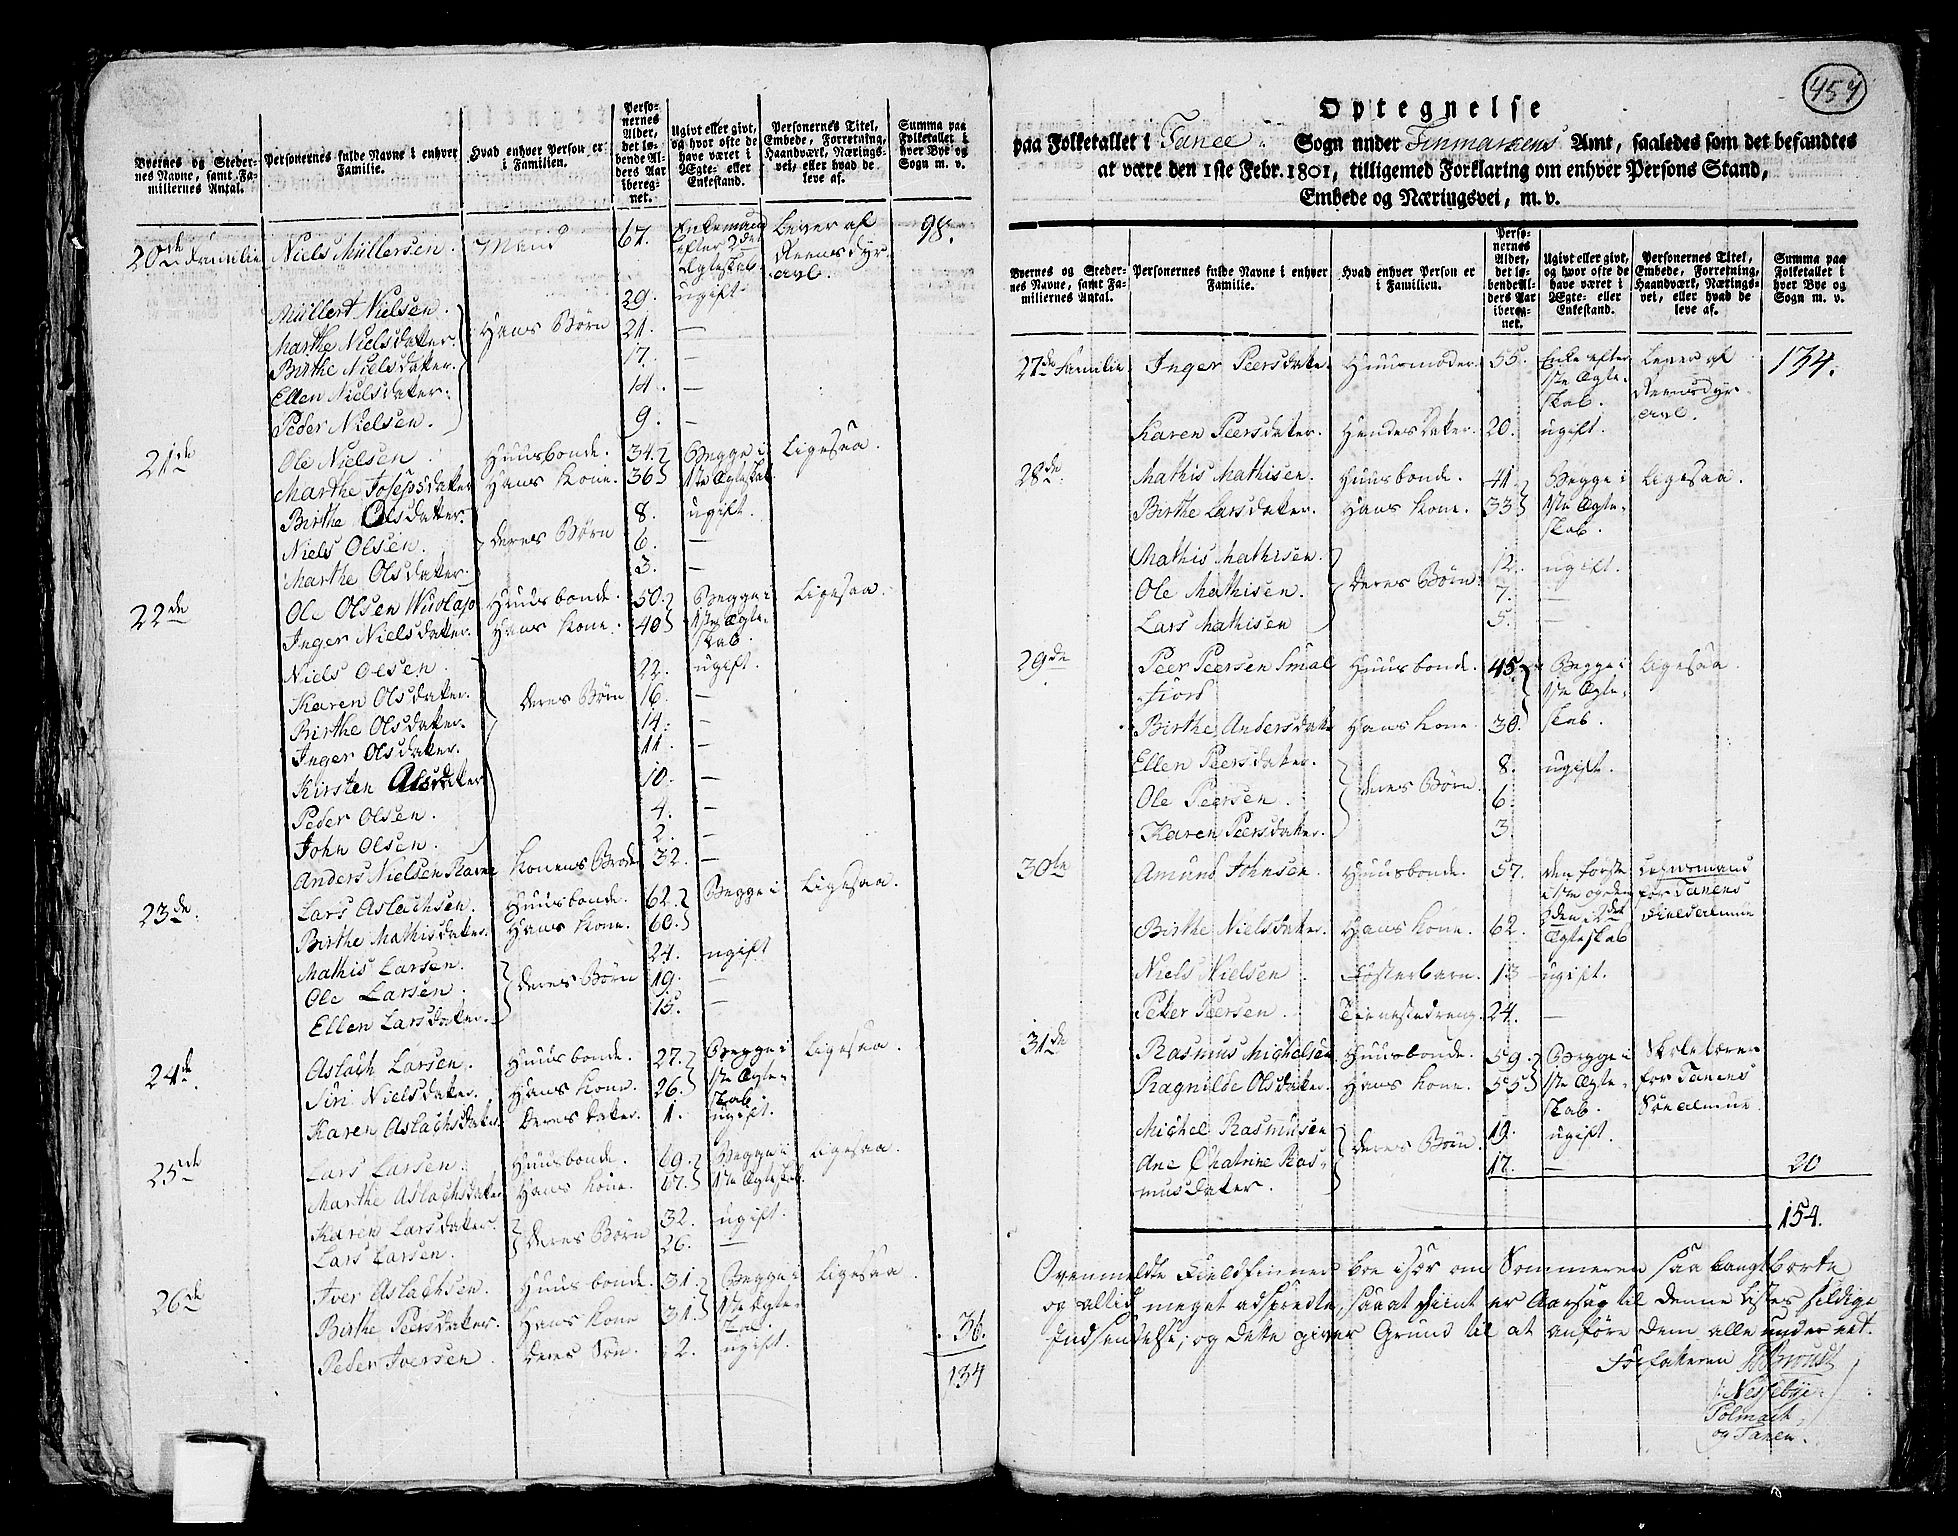 Byernes og Steder-
nes Navne, samt Fa-
miliernes Antal.
Personernes fulde Navne i enhver
Familie.
Hvad enhver Person er
i Familien.
Perso-
nernes
Alder,
det lø-
bende Al-
ders Aar
ibereg-
net.
Ugivt eller givt,
og hvor ofte de
have været i
Ægte- eller
Enkestand.
Personernes Titel,
Embede, Forretning,
Haandværk, Nærings-
vei, eller hvad de
leve af.
Summa paa
Folketallet i
hver Bye og
Sogn m. v.
20de Familie Niels Müllersen. Mand 67. Enkemand Lever af 98.
efter 2det Reensdyr
Ægteskab avl.
Müllert Nielsen. 29. ugift.
Marthe Nielsdater. Hans Børn 21. —
Birthe Nielsdater. 17. —
Ellen Nielsdater. 14. —
Peder Nielsen. 9. —
21de Ole Nielsen Huusbonde. 34. Begge i Ligesaa.
Marthe Josepsdater Hans Kone. 36 1ste Ægteskab
Birthe Olsdater. 8. ugift.
Niels Olsen. deres Børn 6. —
Marthe Olsdater. 3. —
22de Ole Olsen Huusbonde. 50. Begge i Ligesaa.
Inger Nielsdater. Hans Kone. 40 1ste Ægte-
skab.
Niels Olsen. 22. ugift.
Karen Olsdater. deres Børn 16. —
Birthe Olsdater. 14. —
Inger Olsdater. 11. —
Kirsten Olsdater 10. —
Peder Olsen. 4. —
John Olsen. 2. —
Anders Nielsen Ravna Konens Broder 32. —
23de. Lars Aslachsen. Huusbonde. 62. Begge i Ligesaa.
Birthe Mathisdater. Hans Kone. 60.
Mathis Larsen. 24. ugift
Ole Larsen. deres Børn 19. —
Ellen Larsdater. 15. —
24de. Aslach Larsen. Huusbonde. 27. Begge i Ligesaa.
Siri Nielsdater. Hans Kone. 26. 1ste Ægte-
skab.
Karen Aslachsdater. Deres Dater. 1. ugift.
25de Lars Larsen. Huusbonde. 69. Begge i Ligesaa.
Marthe Aslachsdater Hans Kone. 67. 1ste Ægteskab.
Karen Larsdater. deres Børn 32. ugift.
Lars Larsen. 26. —
26de Iver Aslachsen. Huusbonde. 31. Begge i Ligesaa.
Birthe Peersdater. Hans Kone 31. 1ste Ægte-
skab.
Peder Iversen. deres Søn. 2. ugift. 36.
134
454
Optegnelse
paa Folketallet i Tanee Sogn under Finmarkens Amt, saaledes som det befandtes
at være den 1ste Febr. 1801, tilligemed Forklaring om enhver Persons Stand,
Embede og Næringsvei, m. v.
Byernes og Steder-
nes Navne, samt Fa-
miliernes Antal.
Personernes fulde Navne i enhver
Familie.
Hvad enhver Person er
i Familien.
Perso-
nernes
Alder,
det lø-
bende Al-
ders Aar
ibereg-
net.
Ugivt eller givt,
og hvor ofte de
have været i
Ægte- eller
Enkestand.
Personernes Titel,
Embede, Forretning,
Haandværk, Nærings-
vei, eller hvad de
leve af.
Summa paa
Folketallet i
hver Bye og
Sogn m. v.
27de Familie Inger Peersdater Huusmoder. 55. Enke efter Lever af 134.
1ste Ægte- Reensdyr
skab. avl.
Karen Peersdater. Hendes Dater. 20. ugift.
28de. Mathis Mathisen. Huusbonde. 41. Begge i Ligesaa.
Birthe Larsdater. Hans Kone. 33. 1ste Ægte-
skab.
Mathis Mathisen. 12. ugift.
Ole Mathisen. Deres Børn 7. —
Lars Mathisen 5. —
29de Peer Peersen Smal Huusbonde. 45. Begge i Ligesaa.
fiord 1ste Ægte-
Birthe Andersdater Hans Kone. 30. skab.
Ellen Peersdater. 8. ugift.
Ole Peersen. deres Børn. 6.
Karen Peersdater. 3.
30te Amund Johnsen. Huusbonde. 57. den første Lehnsmand
i 1ste og den for Tanens
Birthe Nielsdater. Hans Kone. 62. 2den i 2det Fieldalmue
Ægteskab
Niels Nielsen Fosterbarn. 13 ugift.
Peder Peersen. Tienestedreng. 24. —
31de Rasmus Michelsen Huusbonde. 59. Begge i Skolelærer
Ragnilde Olsdater. Hans Kone. 55. 1ste Ægte- for Tanens
skab. Søealmue.
Michel Rasmusen deres Børn. 19. ugift.
Ane Chatrine Ras- 17. — 20
musdater.
154.
Ovenmeldte Fieldfinner boe især om Sommeren saa langt borte
og altid meget adspredte, saa at fiint er Aarsag til denne Listes sildige
Indsendelse; og dette giver Grund til at anføre dem alle under eet.
Forfatteren
Nessebye
Polmach
og Tanen.